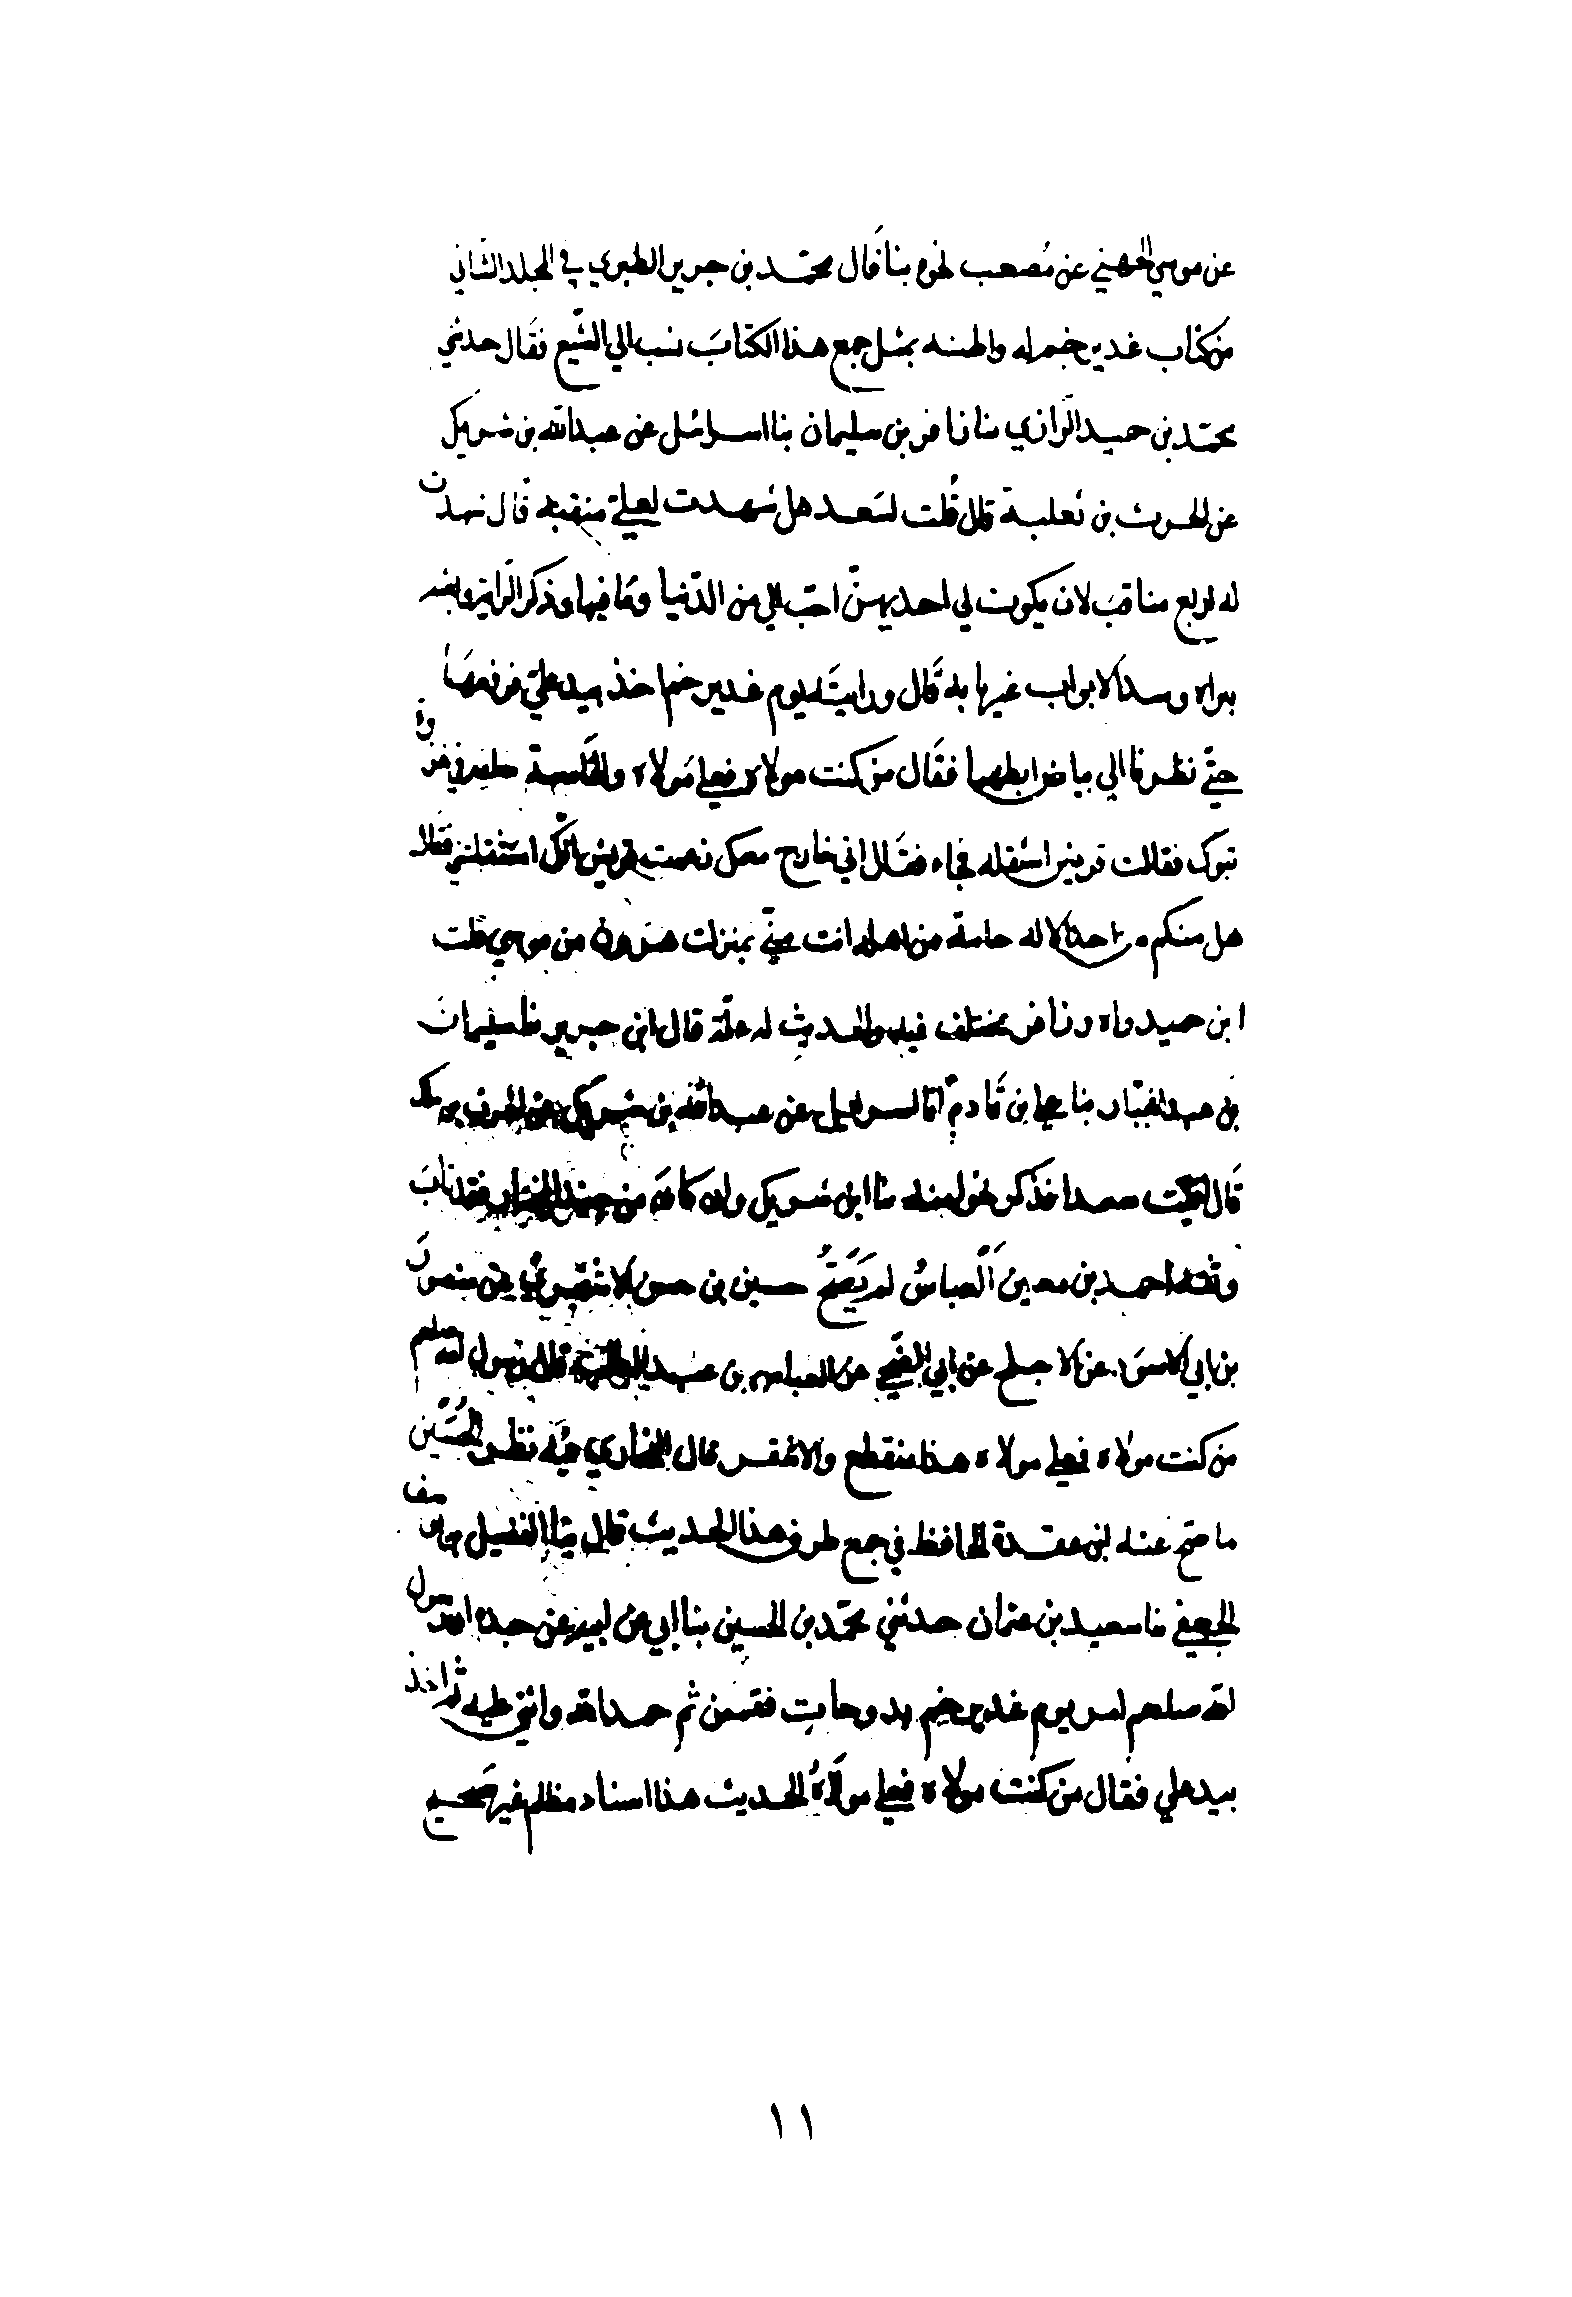 عن موسى الجهني عن مُصعب نحوه بنا قال محمّد بن جرير الطبري في المجلد الثاني
من كتاب غدير خم له واظنه بمثل جمع هذا الكتاب نسب الي التشيع فقال حدثني
محمّد بن حميد الرازي بنا زافر بن سليمان بنا اسرائيل عن عبدالله بن شريك
عن الحرث بن ثعلبة قال قُلت لسَعد هل شهدت لعليّ منقبة قال شهدت
له اربع مناقب لان يكون لي احديهنّ احبّ الي من الدّنيا وما فيها وذكر الراية وابغه
ببراه وسد الابواب غير بابه قال ورايته يوم غدير خم اخذ بيد عليّ فرفعها
حتّي نظرنا الي بياض ابطيهما فقال من كنت مولاه فعلي مولاه والخامسة خلفه في غزوة
تبوك فقالت قريش استثقله فجاء فقال اني خارج معك زعمت قريش انّك استثقلتني فقال
هل منكم احد الا له حامة من اهله انت منّي بمنزلت هرون من موسي قلت
ابن حميد واه وزافر مختلف فيه والحديث له علّة قال ابن جرير بنا سليمان
بن عبد الجبّار بنا علي بن قادم انا اسرائيل عن عبدالله بن شريك عن الحرث بن ملك
قال لقيت سعدا فذكر نحوا منه بنا ابن شريك وان كان من فقد تاب
وثقه احمد بن معين العباسُ لم يَصَحّ حسين بن حسن الاشقري عن منصور
بن ابي الاسود عن الاجلح عن ابي الضحي عن العباس بن عبد المطلب قال رسول الله صلعم
من كنت مولاه فعلي مولاه هذا منقطع والاشقر قال البخاري فيه نظر الحُسَين
ما صح عنه ابن عقدة الحافظ في جمع طرق هذا الحديث قال بنا الفضيل بن يوسف
الجعفي نا سعيد بن عثمان حدثني محمّد بن الحسين بنا ابي عن ابيه عن جده ان رسول
الله صلعم امر يوم غدير خم بدوحات فقممن ثم حمد الله واثني عليه ثم اخذ
بيد علي فقال من كنت مولاه فعلي مولاهُ الحديث هذا اسناد مظلم غير صحيح
١١